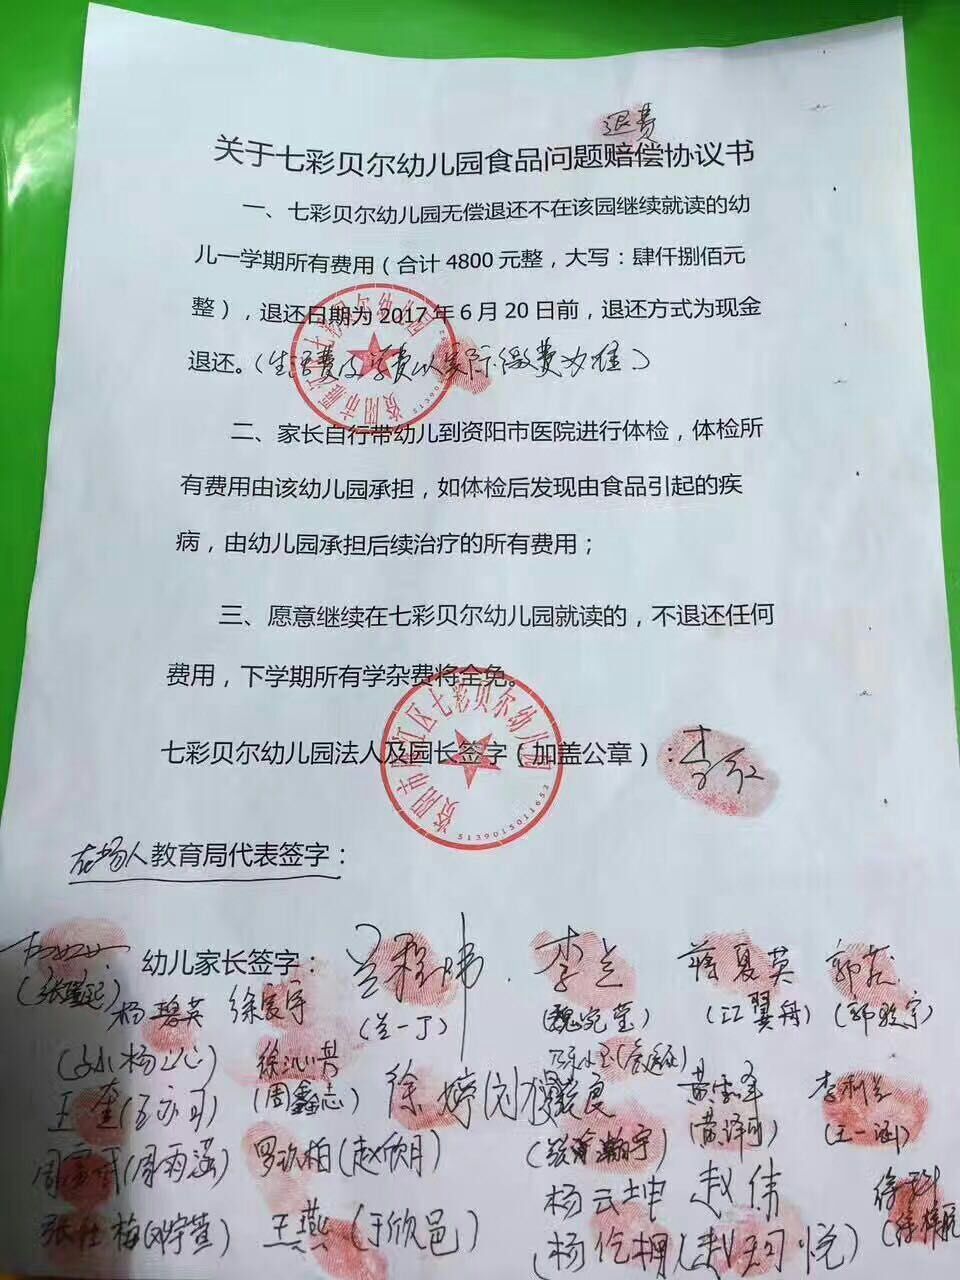 退费
关于七彩贝尔幼儿园食品问题赔偿协议书
一、七彩贝尔幼儿园无偿退还不在该园继续就读的幼
儿一学期所有费用（合计 4800 元整，大写：肆仟捌佰元
整），退还日期为 2017 年 6 月 20 日前，退还方式为现金
退还。（生活费及学费以实际缴费为准）
资阳市雁江区七彩贝尔幼儿园
二、家长自行带幼儿到资阳市医院进行体检，体检所
有费用由该幼儿园承担，如体检后发现由食品引起的疾
病，由幼儿园承担后续治疗的所有费用；
三、愿意继续在七彩贝尔幼儿园就读的，不退还任何
费用，下学期所有学杂费将全免。
七彩贝尔幼儿园法人及园长签字（加盖公章）：
资阳市雁江区七彩贝尔幼儿园
5139015011652
在场人教育局代表签字：
幼儿家长签字： 兰程炜 李兰 蒋夏英
杨碧英 徐宸宇 (兰一丁) (魏宛莹) (江翼舟) (郭雅宇)
徐沁其
王奎 (周鑫志) 徐婷 李利兰
(黄译可) (王一涵)
周富成(周雨涵) 罗玖柏(赵欣月)
杨云坤 赵伟
张仕梅(邓宇萱) 王燕(于欣邑) (赵羽悦)